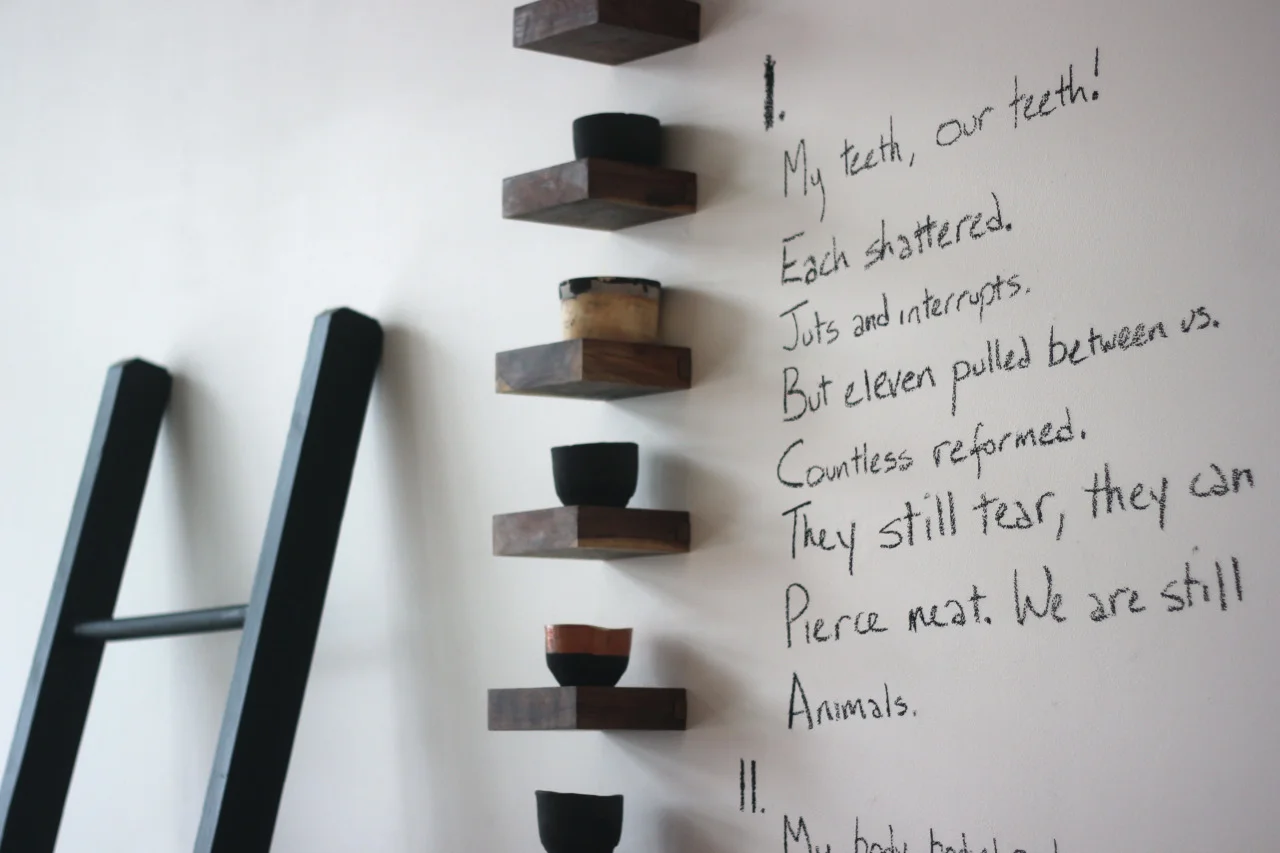 I.
My teeth, our teeth!
Each shattered.
Juts and interrupts.
But eleven pulled between us.
Countless reformed.
They still tear, they can
Pierce meat. We are still
Animals.
II.
My body